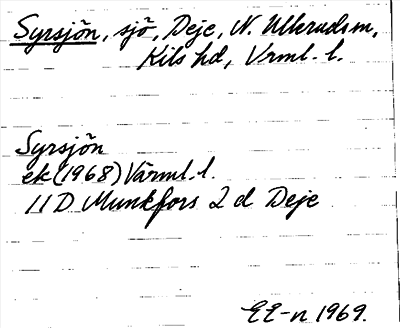 Syrsjön, sjö, Deje, N. Ullerudsm,
Kils hd, Vrml. l.
Syrsjön
ek (1968) Värml. l.
11D Munkfors 2d Deje
EE-n 1969.